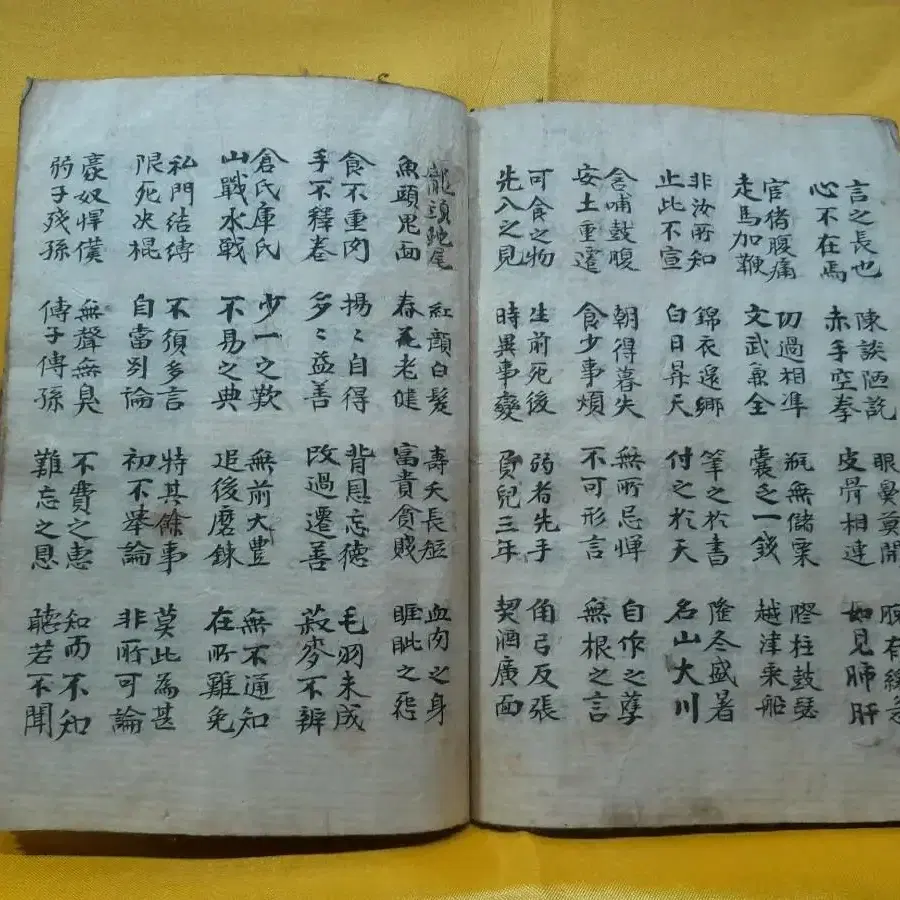 言之長也 陳談陋說 眼鼻莫開 有緩急
心不在焉 赤手空拳 皮骨相連 如見肺肝
官猪腹痛 切過相準 瓶無儲粟 膠柱鼓瑟
走馬加鞭 文武兼全 囊乏一錢 越津乘船
非汝所知 錦衣還鄉 筆之於書 隆冬盛著
止此不宣 白日昇天 付之於天 名山大川
含哺鼓腹 朝得暮失 無所忌憚 自作之孽
安土重遷 食少事煩 不可形言 無根之言
可食之物 生前死後 弱者先手 角弓反張
先入之見 時異事變 負兒三年 契酒廣面
龍頭蛇尾 紅顏白髮 壽夭長短 血肉之身
魚頭鬼面 春花老健 富貴貧賤 睚眦之怨
食不重肉 揚〻自得 背恩忘德 毛羽未成
手不釋卷 多〻益善 改過遷善 菽麥不辨
倉氏庫氏 少一之歎 無前大豊 無不通知
山戰水戰 不易之典 追後磨鍊 在所難免
私門結縛 不須多言 特其餘事 莫此為甚
限死決棍 自當別論 初不擧論 非所可論
豪奴悍僕 無聲無臭 不費之惠 知而不知
弱子殘孫 傳子傳孫 難忘之恩 聽若不聞